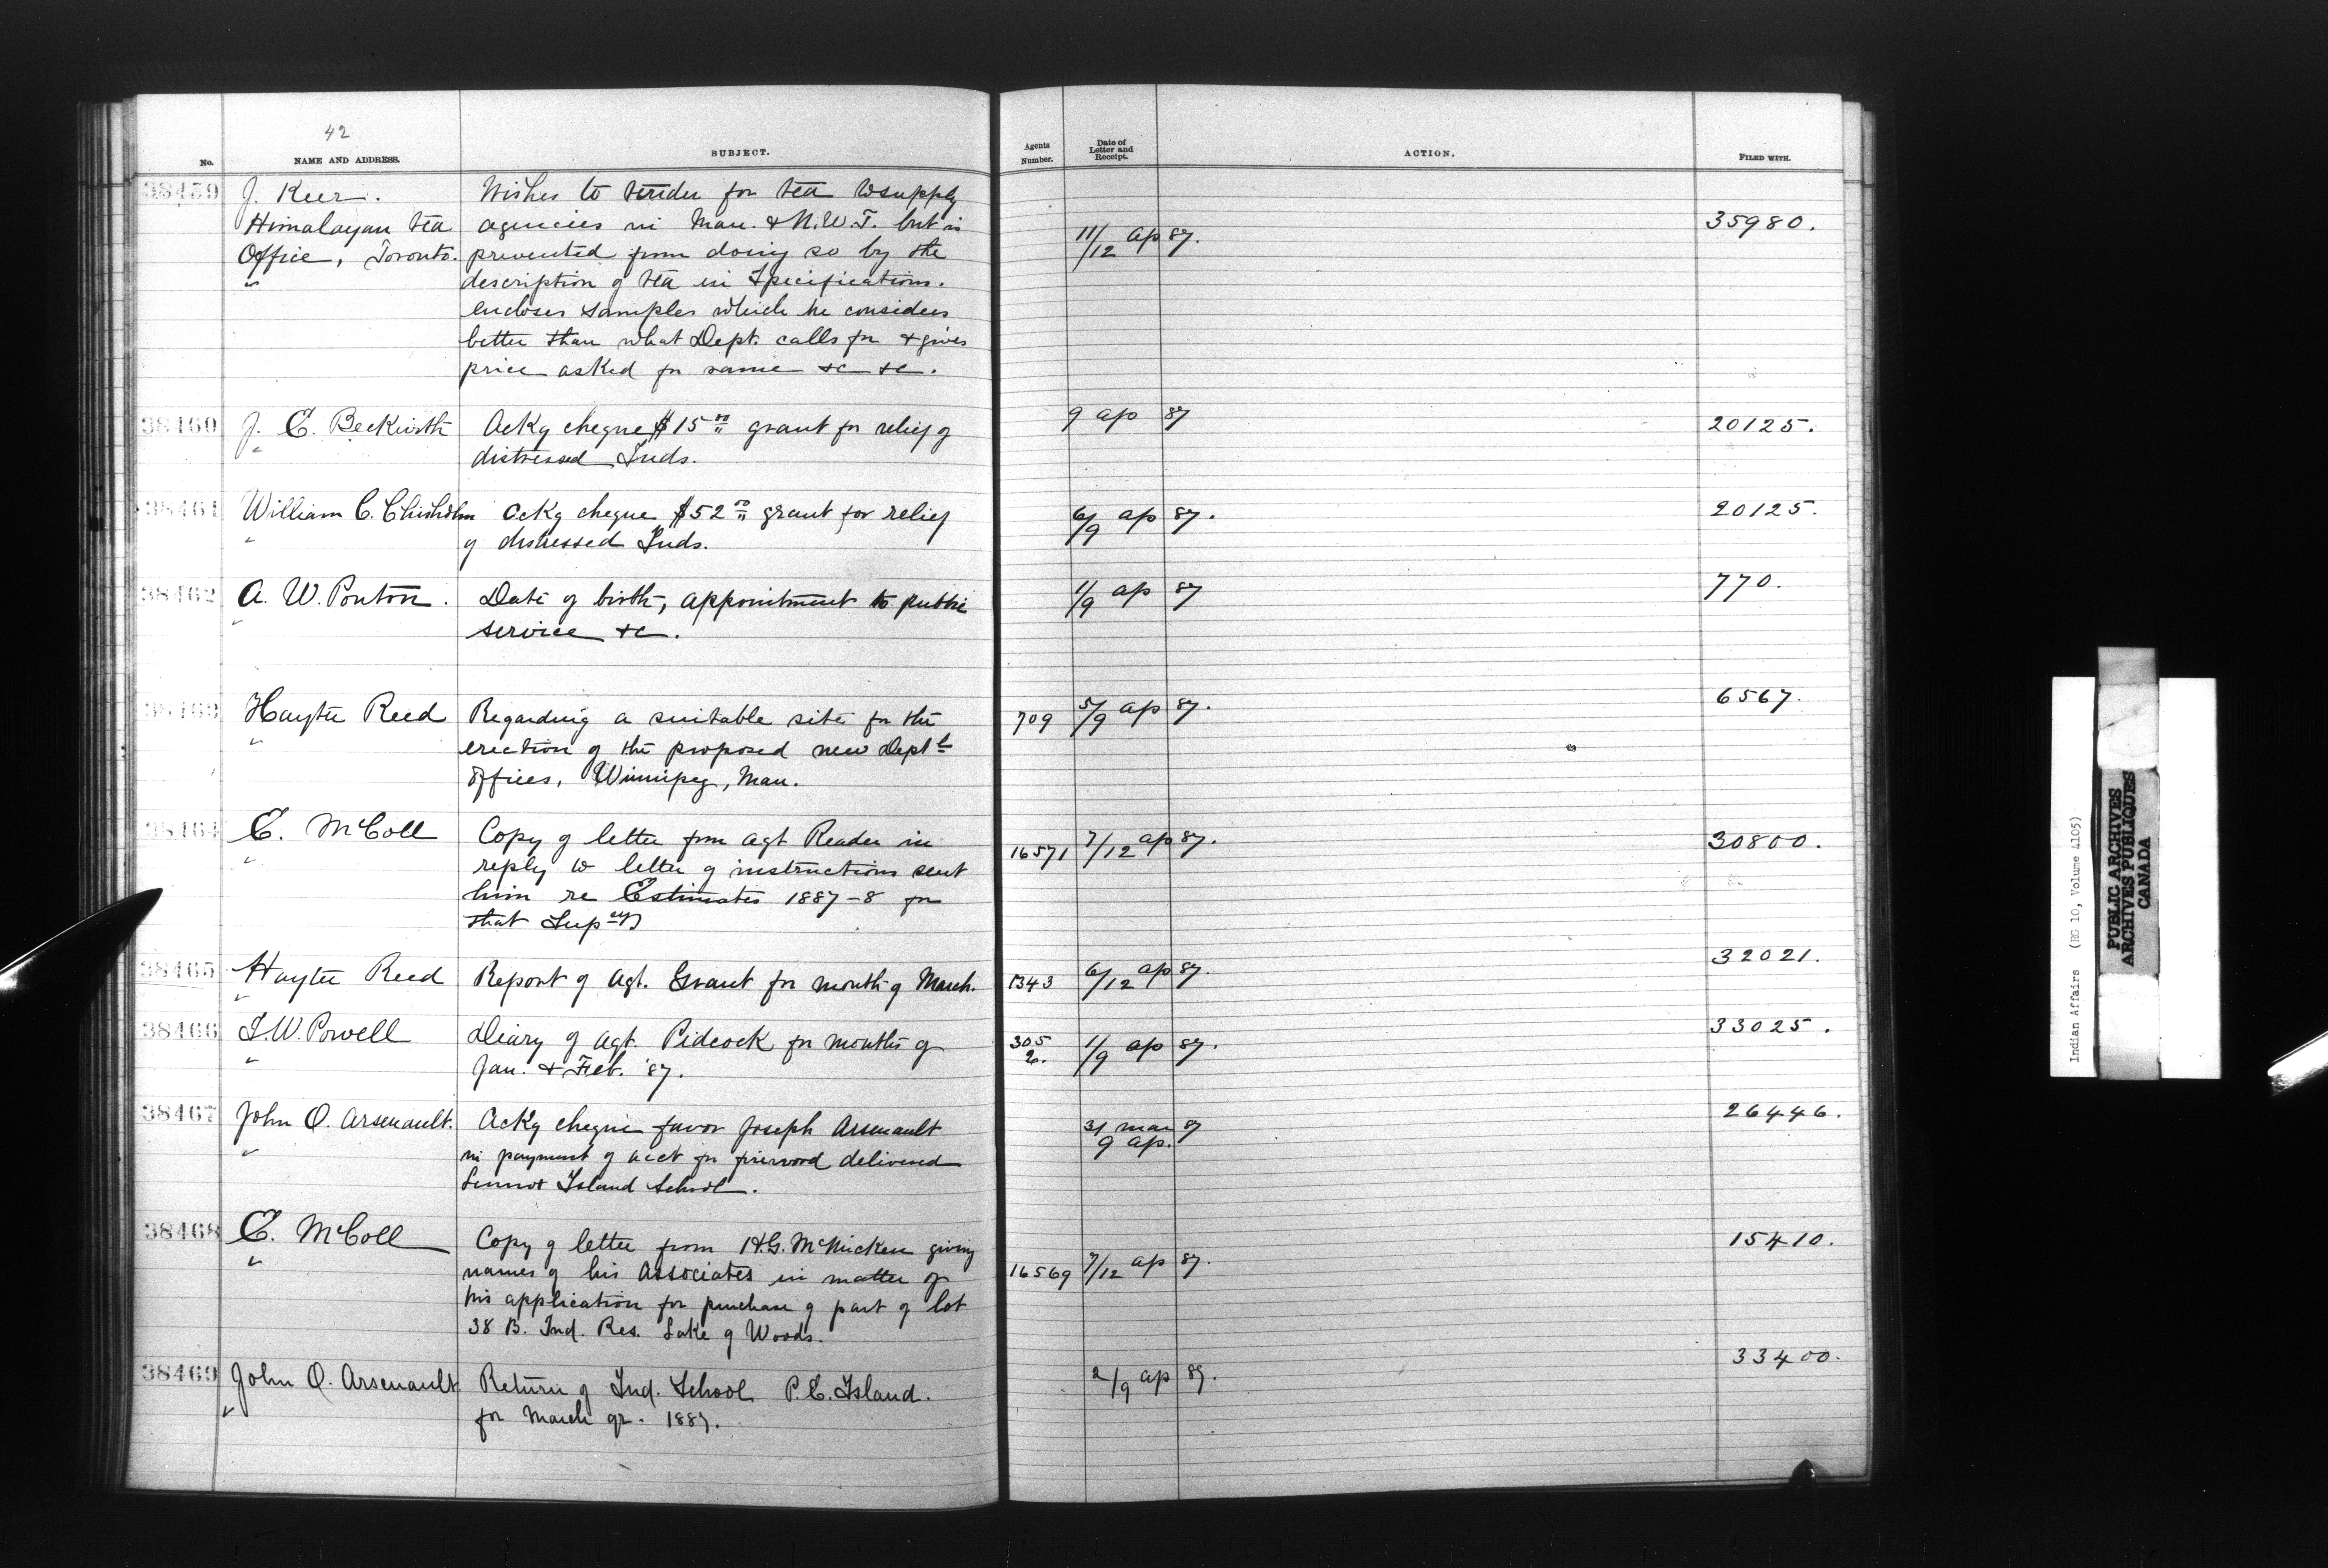 42
No. NAME AND ADDRESS. SUBJECT. Agents Number. Date of Letter and Receipt. ACTION. FILED WITH.
38459 J. Keer. Wishes to tender for tea to supply
Himalayan tea agencies in Man. & N.W.T. but is 11/12 ap 87. 35980.
Office, Toronto. prevented from doing so by the
description of tea in Specifications.
encloses samples which he considers
better than what Dept. calls for & gives
price asked for same &c &c.
38460 J. E. Beckwith Ackg cheque $15 00/" grant for relief of 9 ap 87 20125.
distressed Inds.
38461 William C. Chisholm Ackg cheque $52 00/" grant for relief 6/9 ap 87. 20125.
of distressed Inds.
38462 A. W. Ponton. Date of birth, appointment to public 1/9 ap 87 770.
service &c.
38463 Hayter Reed Regarding a suitable site for the 709 5/9 ap 87. 6567.
erection of the proposed new Deptl
Offices, Winnipeg, Man.
38464 E. McColl Copy of letter from Agt Reader in 16571 7/12 ap 87. 30800.
reply to letter of instructions sent
him re Estimates 1887-8 for
that Supcy
38465 Hayter Reed Report of Agt. Grant for month of March. 1343 6/12 ap 87. 32021.
38466 I. W. Powell Diary of Agt. Pidcock for months of 305 1/9 ap 87. 33025.
Jan. & Feb. '87. 2.
38467 John O. Arsenault. Ackg cheque favor Joseph Arsenault 31 mar 87 26446.
in payment of acct for firewood delivered 9 ap.
Lennox Island School.
38468 E. McColl Copy of letter from H.G. McMicken giving 15410.
names of his Associates in matter of 16569 7/12 ap 87.
his application for purchase of part of lot
38 B. Ind. Res. Lake of Woods.
38469 John O. Arsenault Return of Ind. School P.E. Island. 2/9 ap 87. 33400.
for March qr. 1887.
Indian Affairs (RG 10, Volume 4105)
PUBLIC ARCHIVES
ARCHIVES PUBLIQUES
CANADA